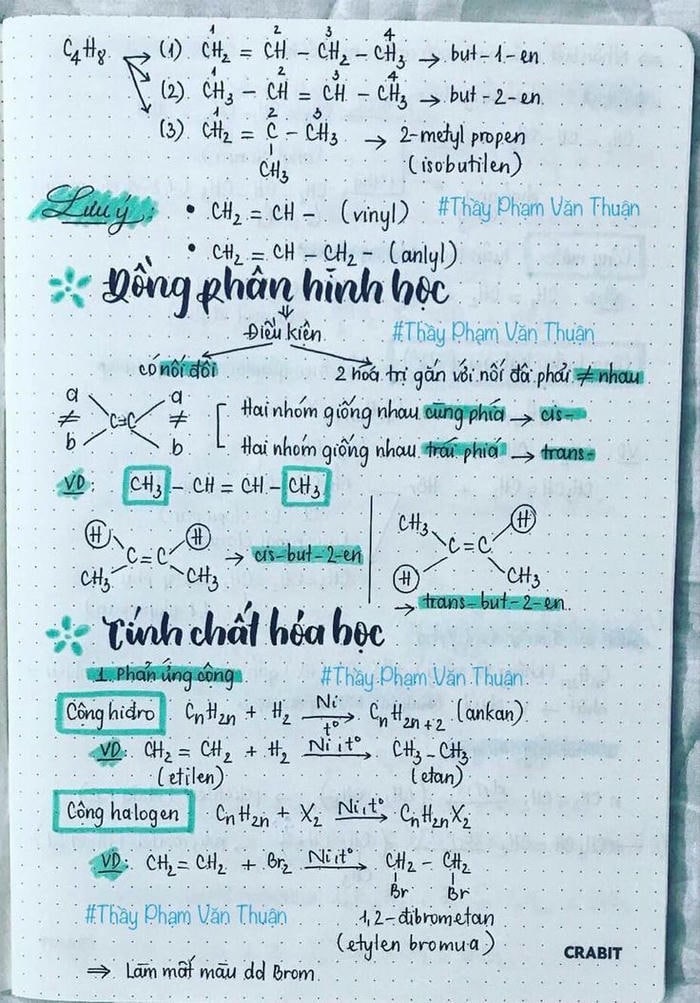 C4H8 → (1) CH2 = CH - CH2 - CH3 → but-1-en
1 2 3 4
(2) CH3 - CH = CH - CH3 → but-2-en
1 2 3 4
(3) CH2 = C - CH3 → 2-metyl propen
1 2 3
CH3 (isobutilen)
Lưu ý: • CH2 = CH - (vinyl) #Thầy Phạm Văn Thuận
• CH2 = CH - CH2 (anlyl)
Đồng phân hình học
Điều kiện #Thầy Phạm Văn Thuận
có nối đôi 2 hoá trị gắn với nối đâ phải ≠ nhau
a a
≠ C=C ≠
b b
Hai nhóm giống nhau cùng phía → cis-
Hai nhóm giống nhau trái phía → trans-
VD: CH3 - CH = CH - CH3
H H
C = C → cis-but-2-en
CH3 CH3
CH3 H
C = C
H CH3
→ trans-but-2-en
Tính chất hóa học
1. Phản ứng cộng #Thầy Phạm Văn Thuận
Cộng hiđro CnH2n + H2 Ni t° → CnH2n+2 (ankan)
VD: CH2 = CH2 + H2 Ni,t° → CH3 - CH3
(etilen) (etan)
Cộng halogen CnH2n + X2 Ni,t° → CnH2nX2
VD: CH2 = CH2 + Br2 Ni,t° → CH2 - CH2
Br Br
#Thầy Phạm Văn Thuận 1,2-đibrometan
(etylen bromua)
CRABIT
⇒ Làm mất màu dd Brom.